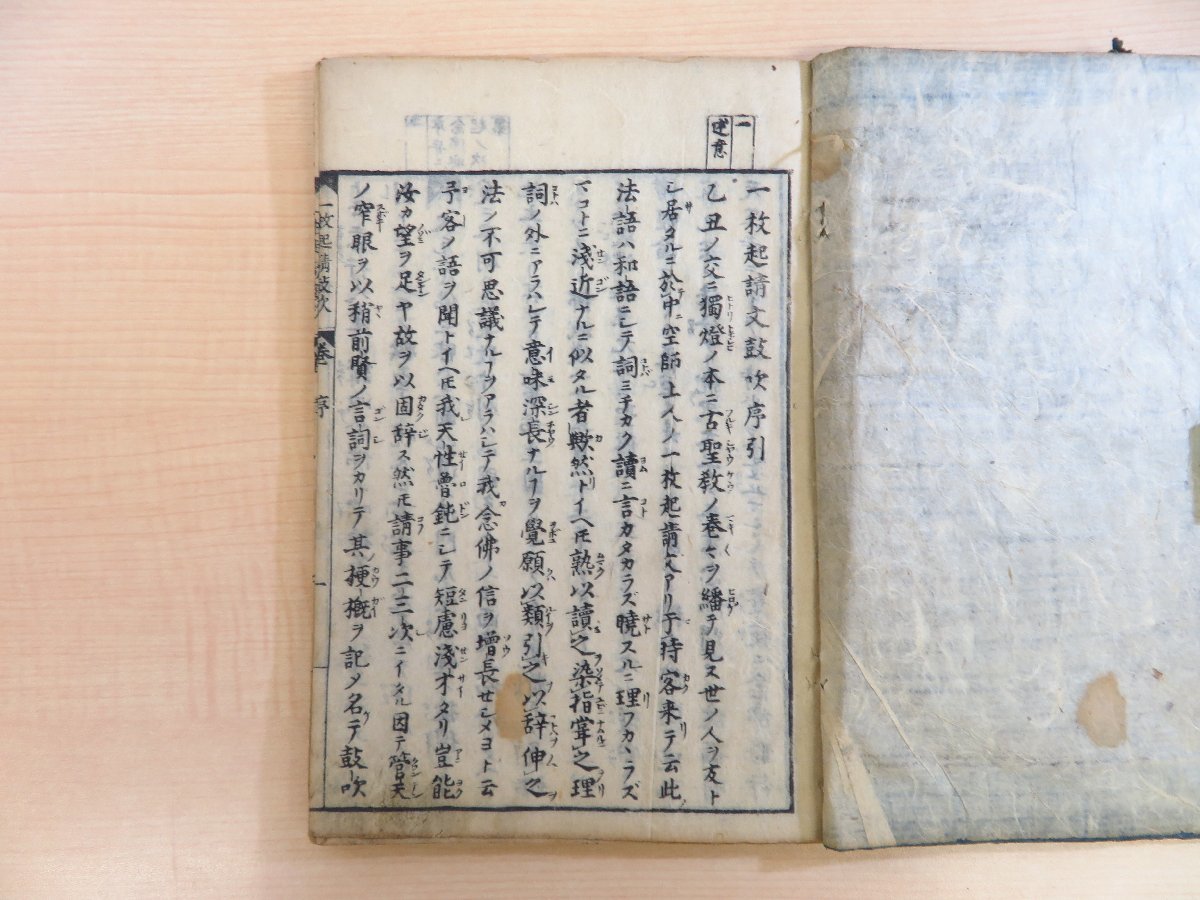 一
建意
一枚起請文鼓吹序引
乙丑ノ交ニ獨燈ノ本ニ古聖教ノ巻〻ヲ繙テ見ヌ世ノ人ヲ友ト
シ居タルニ於中ニ空師上人ノ一枚起請文アリ于時客来テ云此
法語ハ和語ニシテ詞ミチカク讀ニ言カタカラズ曉スルニ理フカヽラズ
マコトニ淺近ナルニ似タル者歟然トイヘ𪜈熟以讀之染指掌之理
詞ノ外ニアラハレテ意味深長ナルヿヲ覺願以類引之以辞伸之
法ノ不可思議ナルヿヲアラハシテ我念佛ノ信ヲ増長セシメヨト云
予客ノ語ヲ聞トイヘ𪜈我天性魯鈍ニシテ短慮淺才タリ豈能
汝カ望ヲ足ヤ故ヲ以固辞ス然𪜈請事二三次ニイタル因テ管天
ノ窄眼ヲ以稍前賢ノ言詞ヲカリテ其梗概ヲ記メ名テ鼓吹
一枚起請鼓吹 巻一 序 一